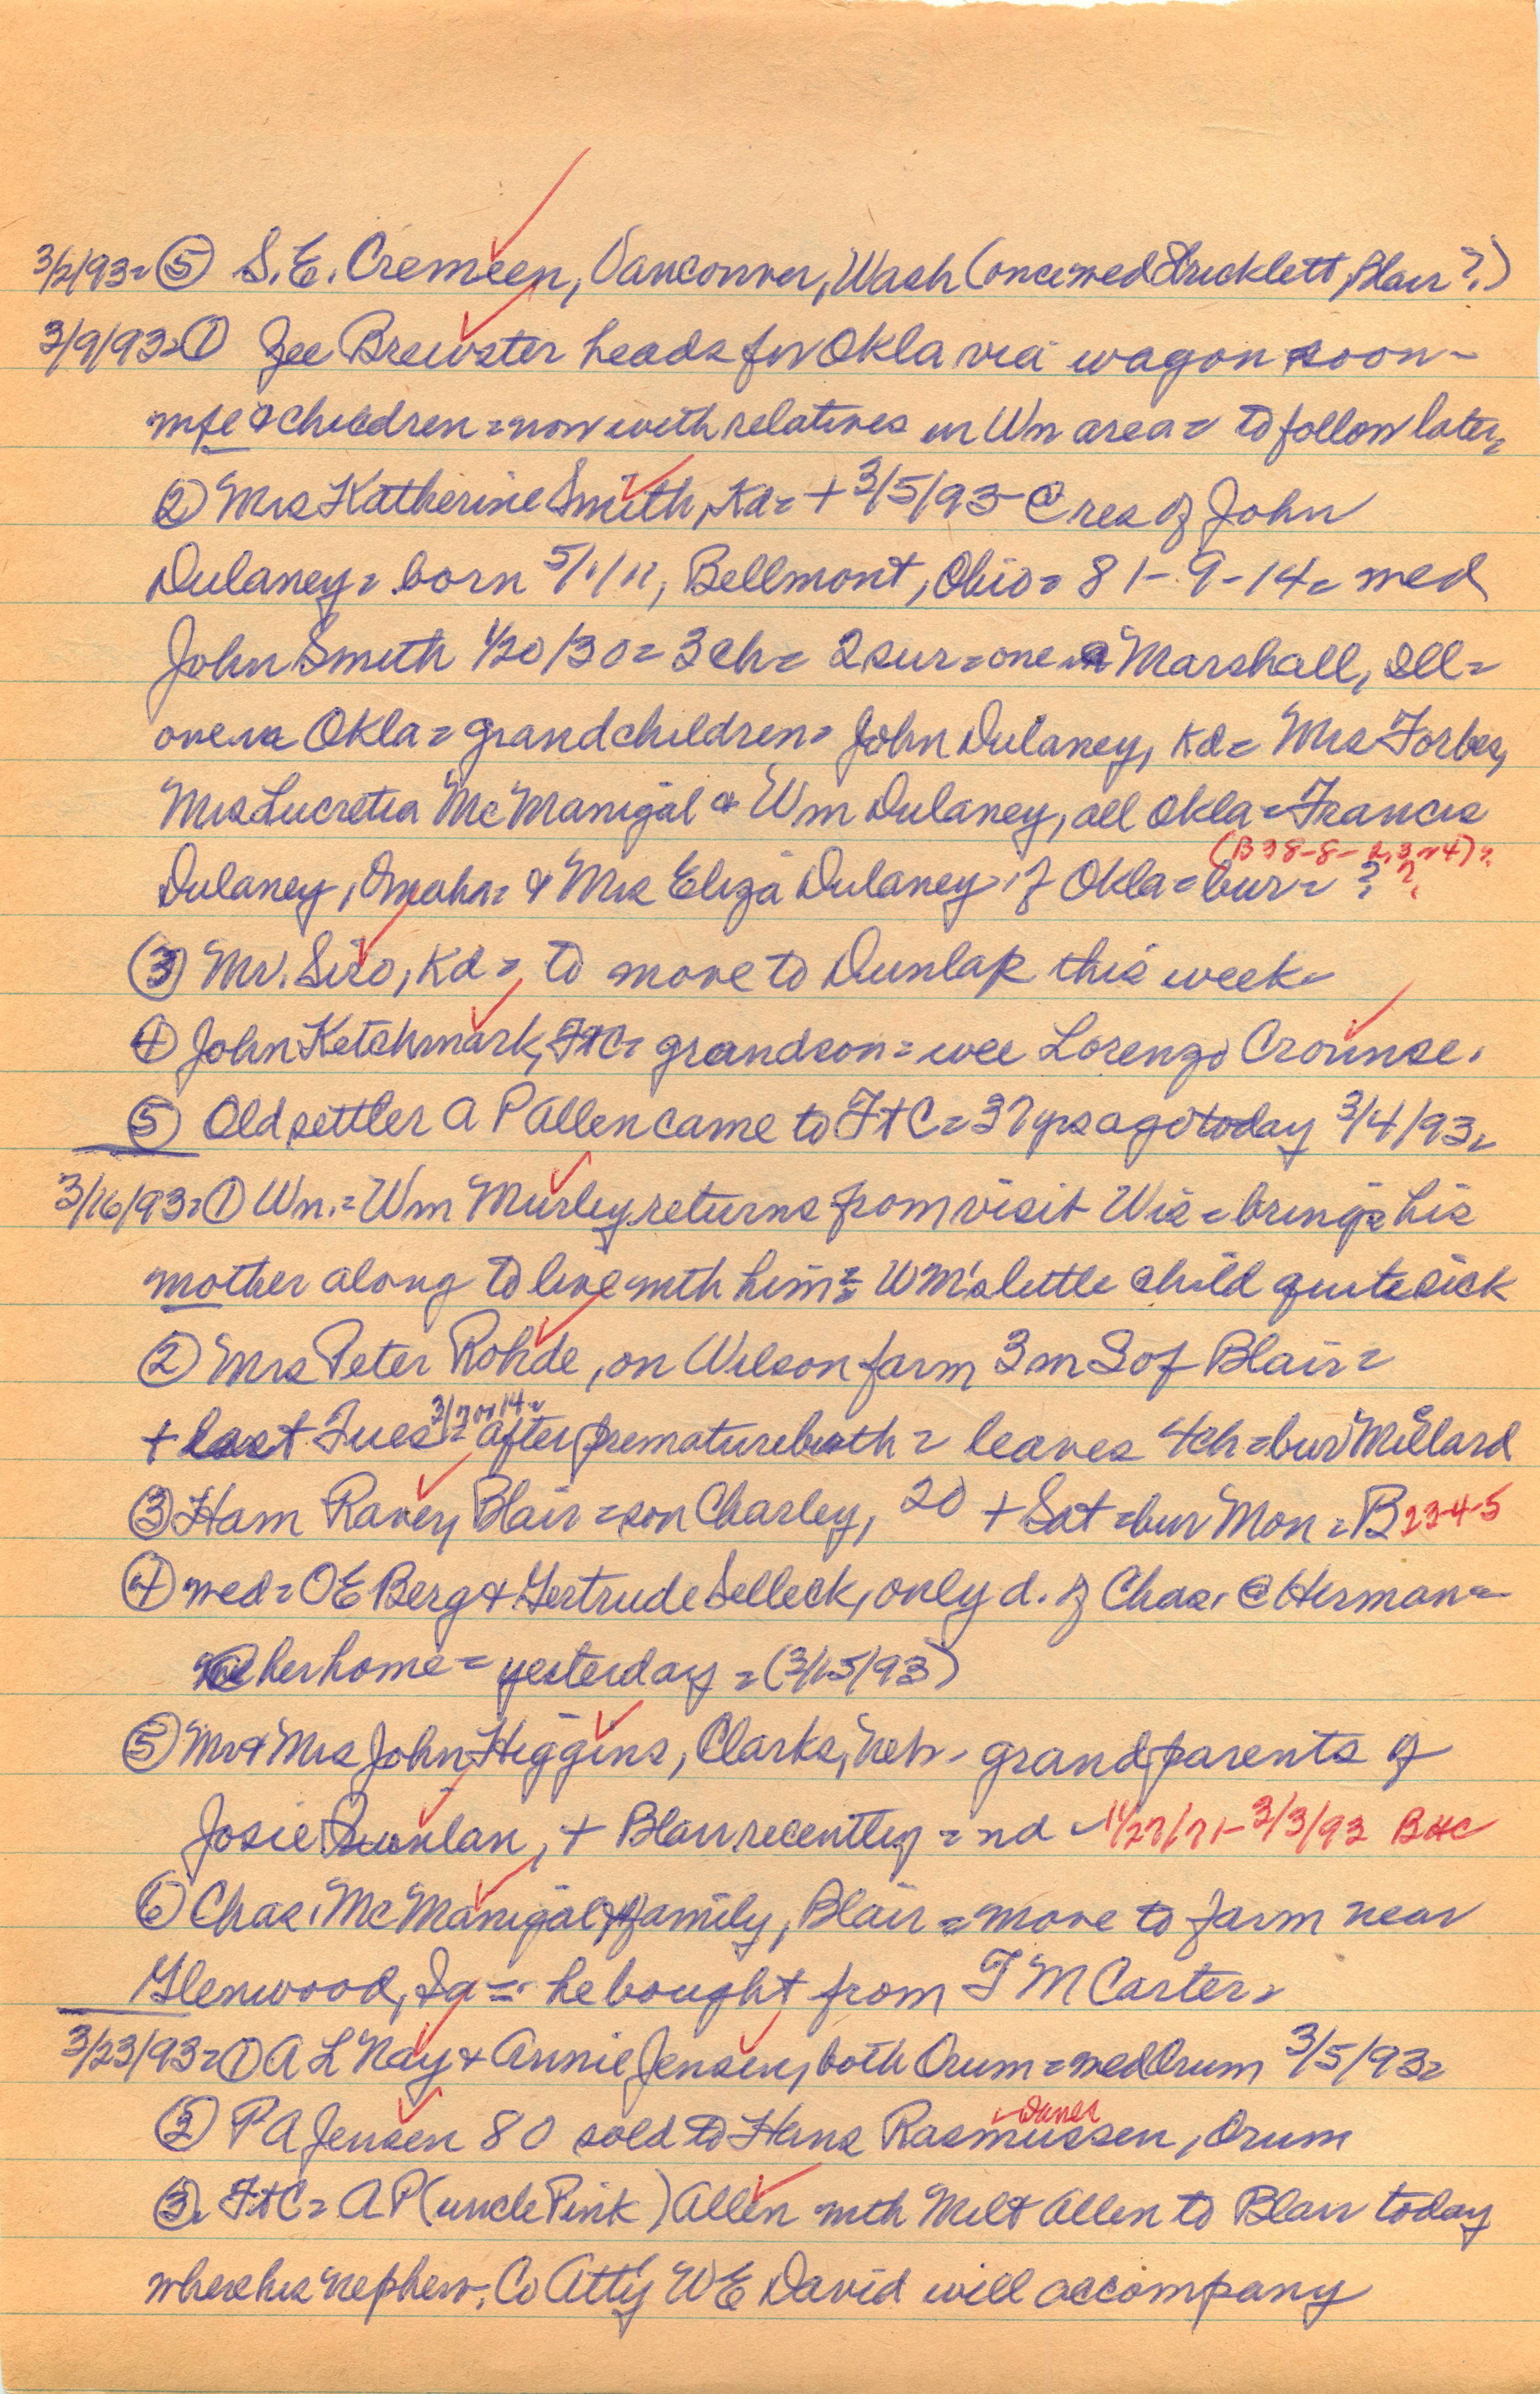 3/2/93= ⑤ S.E. Cremeen, Vancouver, Wash (once wed Stricklett, Blair?)
3/9/93=① Zee Brewster heads for Okla via wagon soon-
wfe & children = now with relatives in Wn area = to follow later=
② Mrs Katherine Smith, Kd= + 3/5/93- @ res of John
Dulaney= born 5/1/11, Bellmont, Ohio= 81-9-14= wed
John Smith 1/20/30= 3 ch= 2 sur=one in Marshall, Ill=
one in Okla = grandchildren= John Dulaney, Kd= Mrs Forbes,
Mrs Lucretia McManigal & Wm Dulaney, all Okla=Francis
(B38-8-2,3 or 4)?
Dulaney, Omaha= & Mrs Eliza Dulaney of Okla=bur= ? ?
③ Mr. Siso, Kd=, to move to Dunlap this week-
④ John Ketchmark, FtC= grandson= wee Lorenzo Crounse.
⑤ Old settler A P Allen came to FtC=37 yrs ago today 3/4/93=
3/16/93=① Wn.=Wm Murley returns from visit Wis=brings his
mother along to live with him== WM's little child quite sick
② Mrs Peter Rohde, on Wilson farm 3 m S of Blair=
3/7 or 14=
+ last Tues= after premature birth = leaves 4ch=bur Millard
③ Ham Ravery Blair=son Charley, 20 + Sat=bur Mon=B 23-4-5
④ wed=OE Berg & Gertrude Selleck, only d. of Chas. @ Herman=
@ her home= yesterday =(3/15/93)
⑤ Mr & Mrs John Higgins, Clarks, Neb- grandparents of
Josie Quinlan, + Blair recently = nd - 11/27/71-3/3/93 BHC
⑥ Chas. McManigal & family, Blair = move to farm near
Glenwood, Ia=. he bought from T M Carter=
3/23/93=① A L Nay & Annie Jensen, both Orum=wed Orum 3/5/93=
Danes
② P A Jensen 80 sold to Hans Rasmussen, Orum
③. FtC= A P (uncle Pink) Allen with Milt Allen to Blair today
where his nephew, Co Att'y W E David will accompany